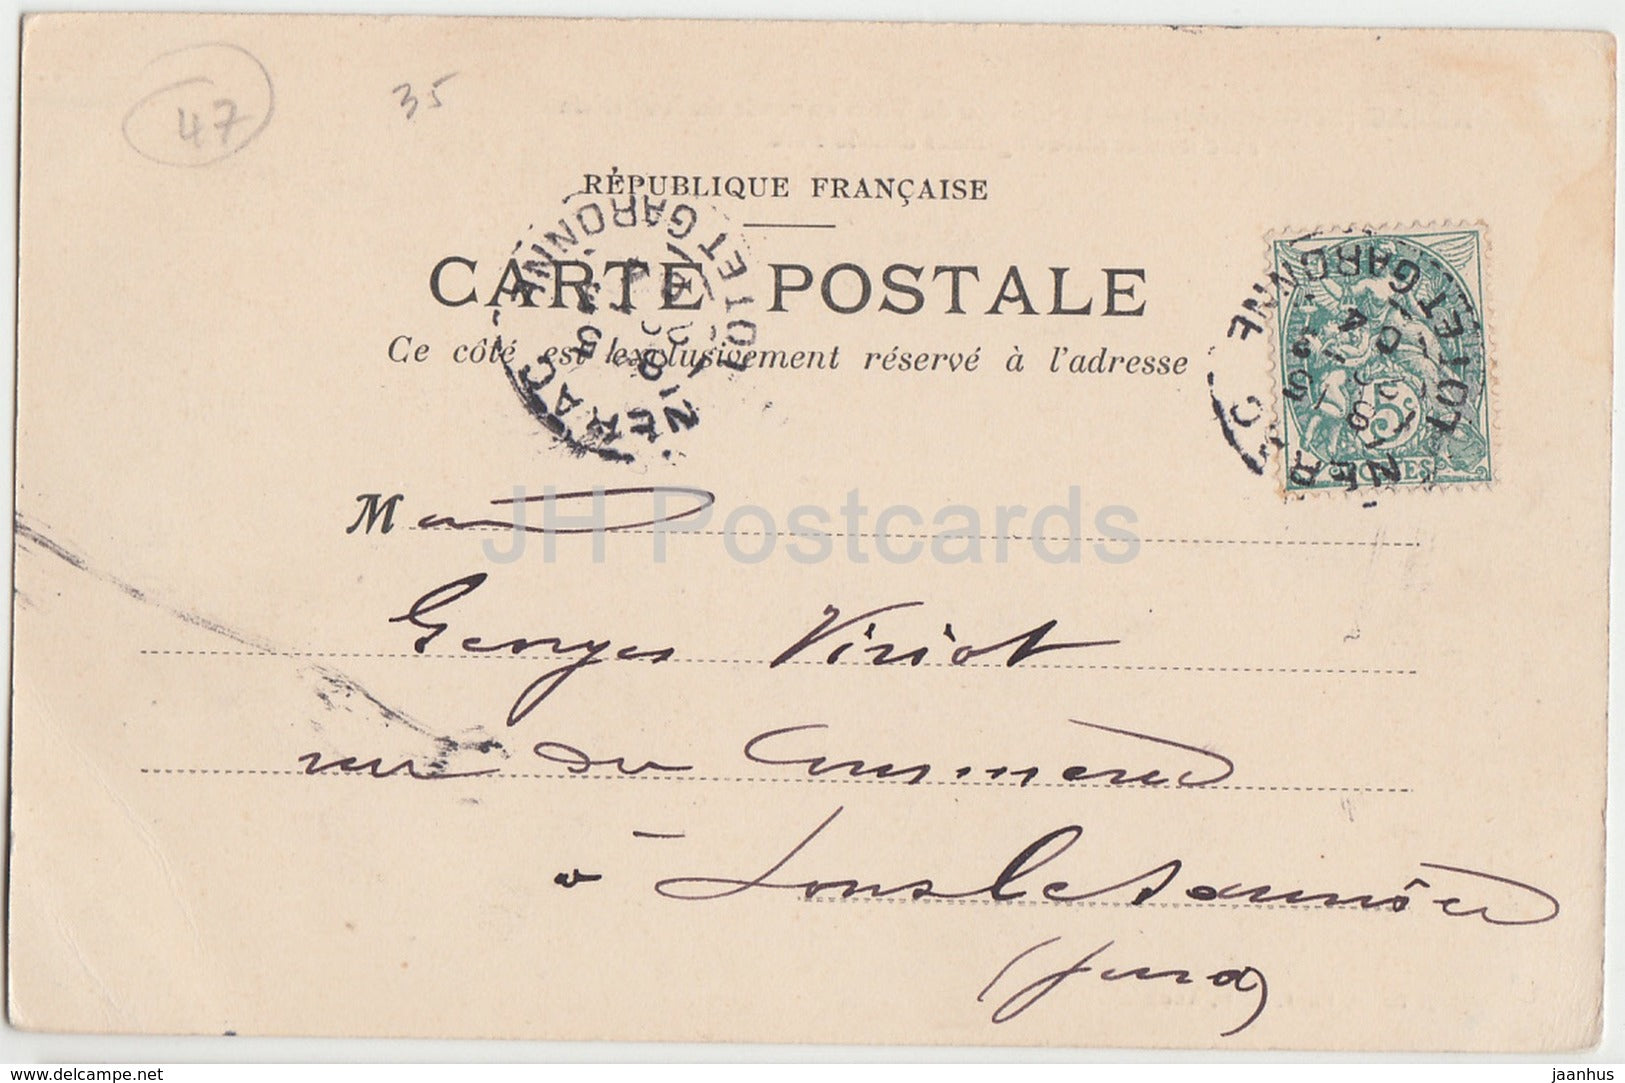 47
35
RÉPUBLIQUE FRANÇAISE
CARTE POSTALE
Ce côté est exclusivement réservé à l'adresse
NERAC
LOT ET GARONNE
LOT ET GARONNE
5c
POSTES
M
JH Postcards
Georges Viriot
rue du Commerce
à Lons le Saunier
(Jura)
www.delcampe.net
jaanhus